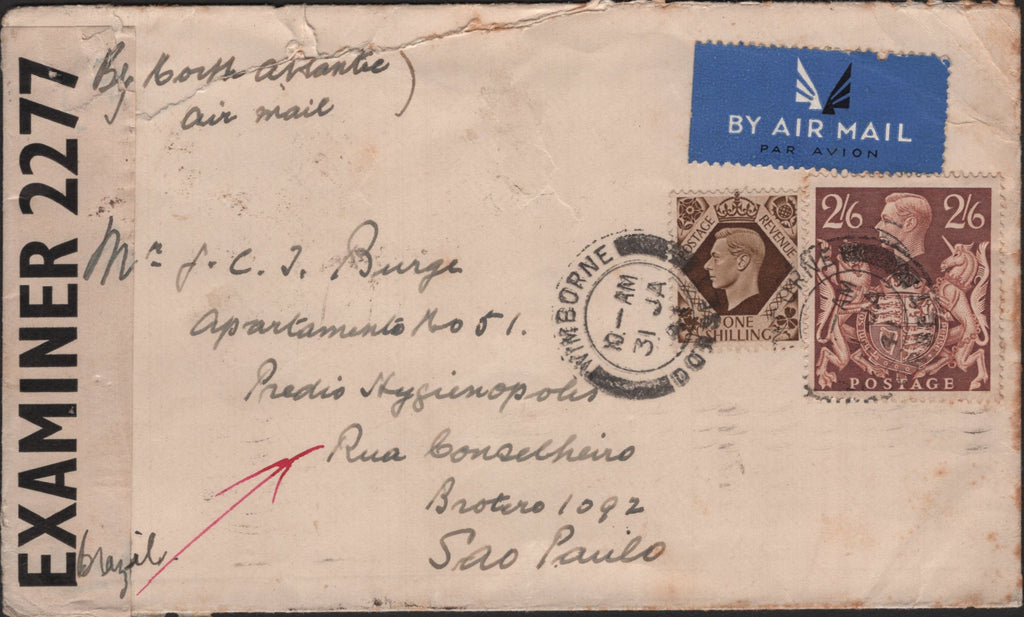 EXAMINER 2277
By North Atlantic
air mail
BY AIR MAIL
PAR AVION
Mr J. C. J. Burge
Apartamento No 51.
Predio Hygienopolis
Rua Conselheiro
Brotero 1092
Sao Paulo
brazil.
POSTAGE REVENUE
ONE
SHILLING
2/6 2/6
POSTAGE
WIMBORNE
10 - AM
31 JA
DORSET